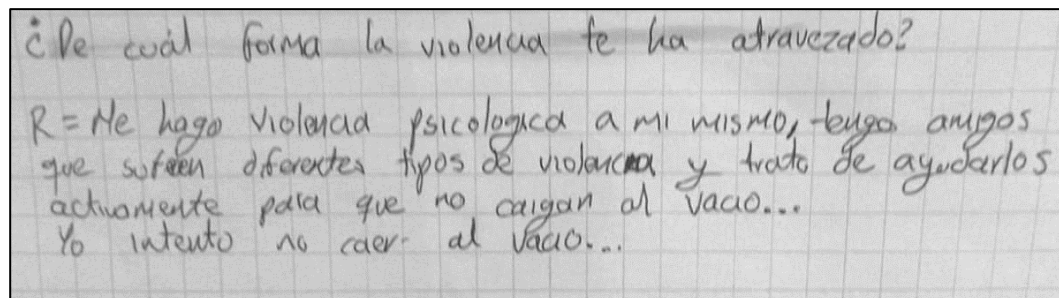 ¿De cuál forma la violencia te ha atravezado?
R= Me hago violencia psicologica a mi mismo, tengo amigos
que sufren diferentes tipos de violencia y trato de ayudarlos
activamente para que no caigan al vacio...
Yo intento no caer al vacio...